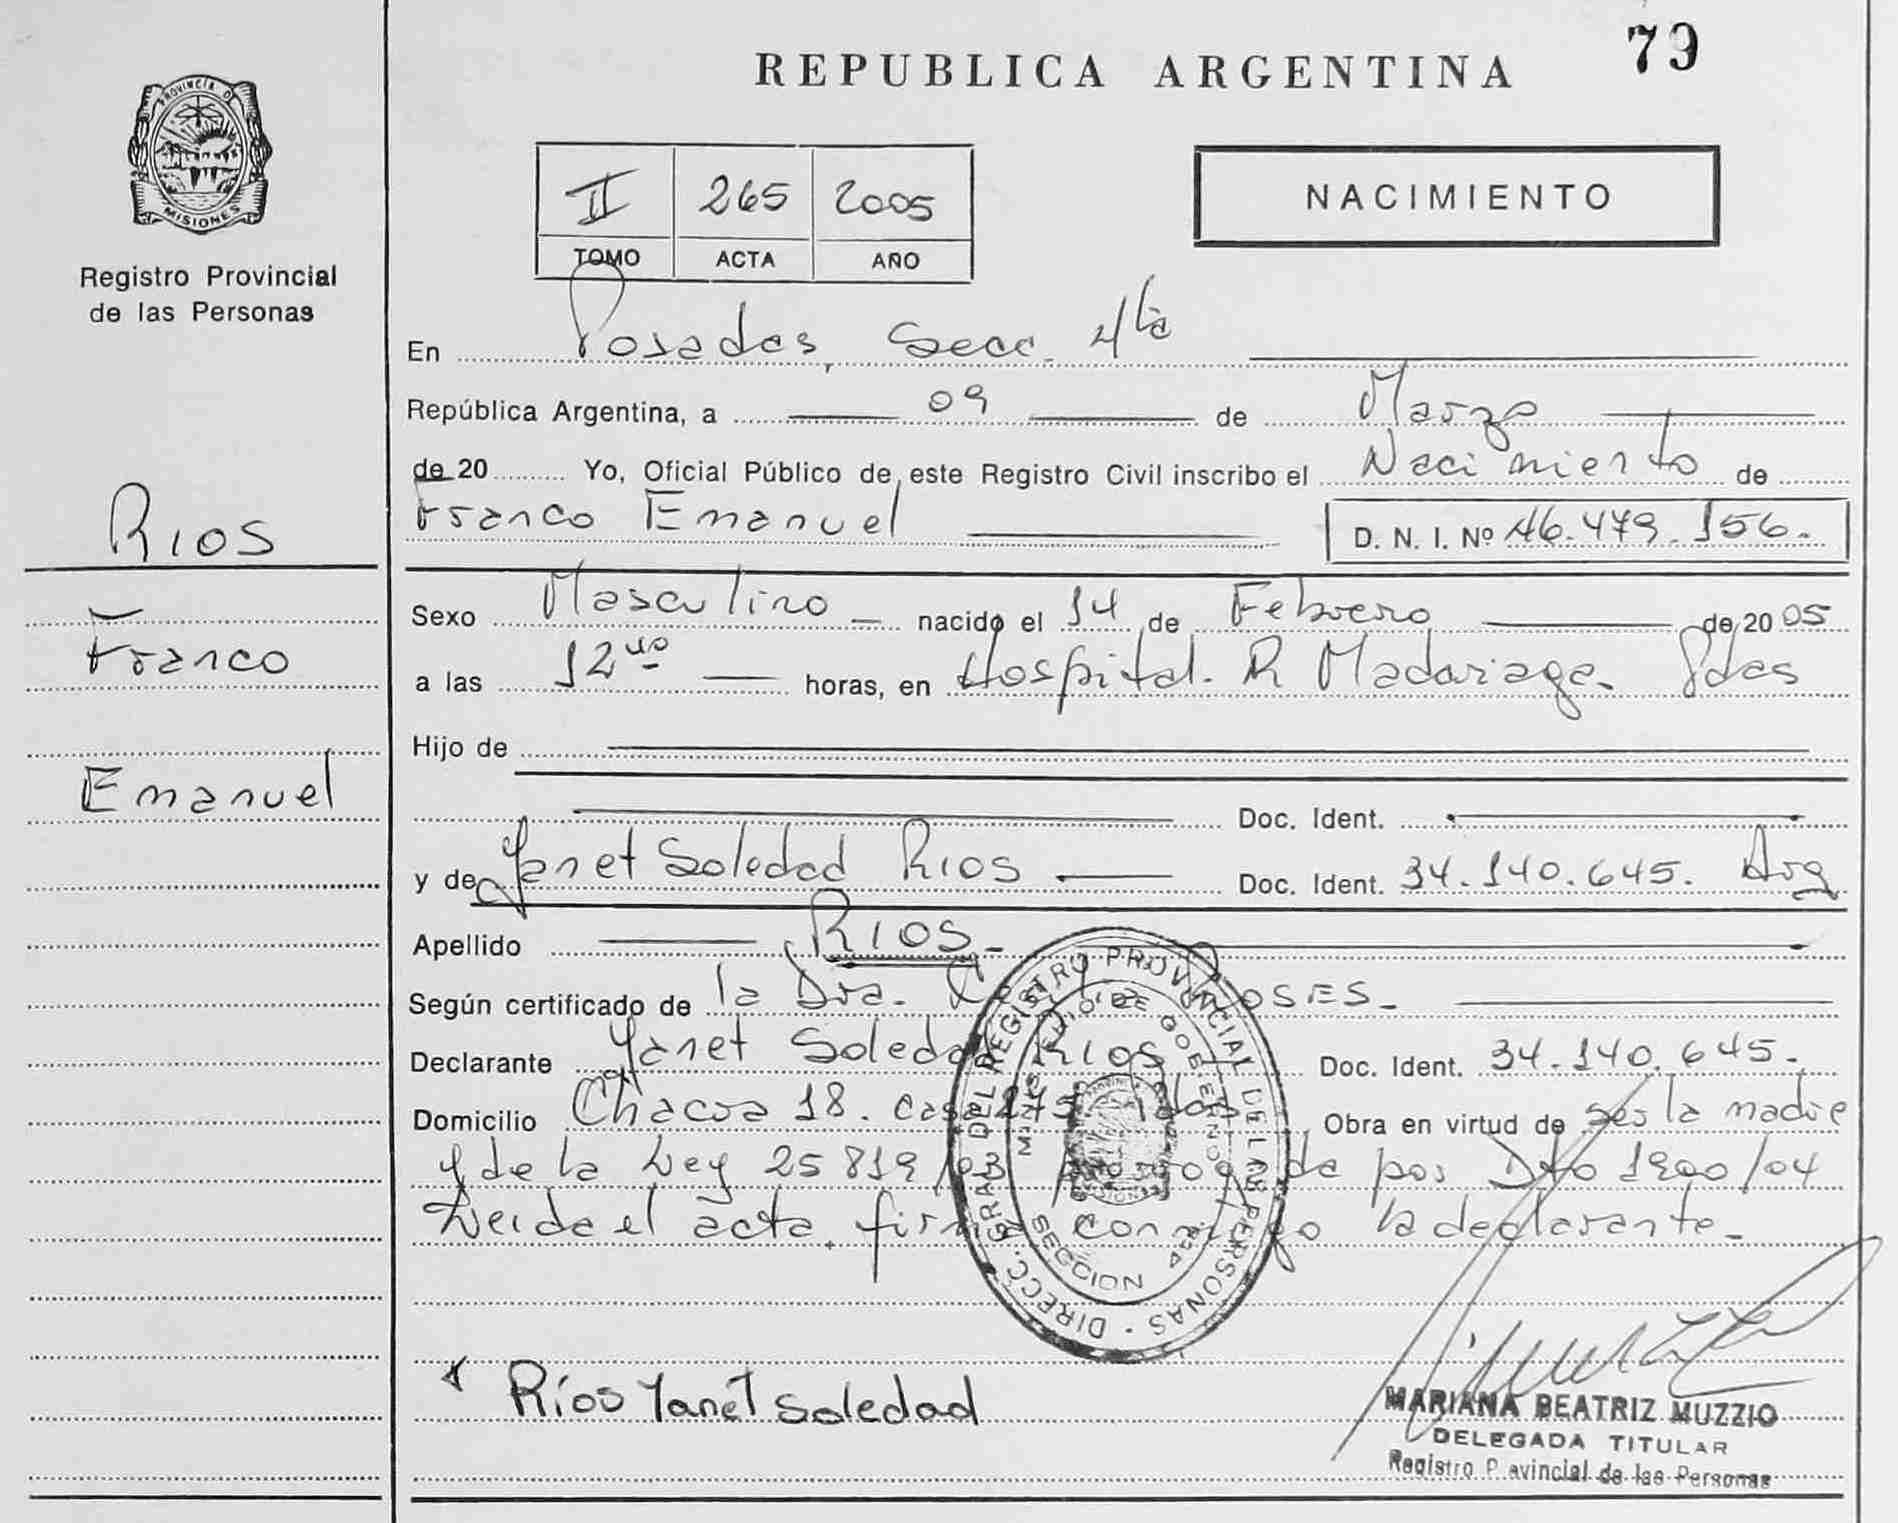 79
REPUBLICA ARGENTINA
PROVINCIA DE
MISIONES
Registro Provincial
de las Personas
II 265 2005
TOMO ACTA AÑO
NACIMIENTO
En Posadas, Secc. 4ta
República Argentina, a 09 de Marzo
de 20 Yo, Oficial Público de este Registro Civil inscribo el Nacimiento de
Franco Emanuel D. N. I. Nº 46.479.156.
RIOS
Franco
Emanuel
Sexo Masculino nacido el 14 de Febrero de 20 05
a las 12 horas, en Hospital. R Madariaga. Pdas
Hijo de
Doc. Ident.
y de Yanet Soledad RIOS Doc. Ident. 34.140.645. Arg
Apellido RIOS
Según certificado de la Dra.
Declarante Yanet Soledad RIOS Doc. Ident. 34.140.645.
Domicilio Chacra 18. casa Obra en virtud de ser la madre
y de la Ley 25819/03 por Dto 1900/04
Leida el acta, firma conmigo la declarante
DIRECC. GRAL DEL REGISTRO PROVINCIAL DE LAS PERSONAS
MINISTERIO DE GOBIERNO
SECCION 4ta.
Ríos Yanet Soledad
MARIANA BEATRIZ MUZZIO
DELEGADA TITULAR
Registro P ovincial de las Personas